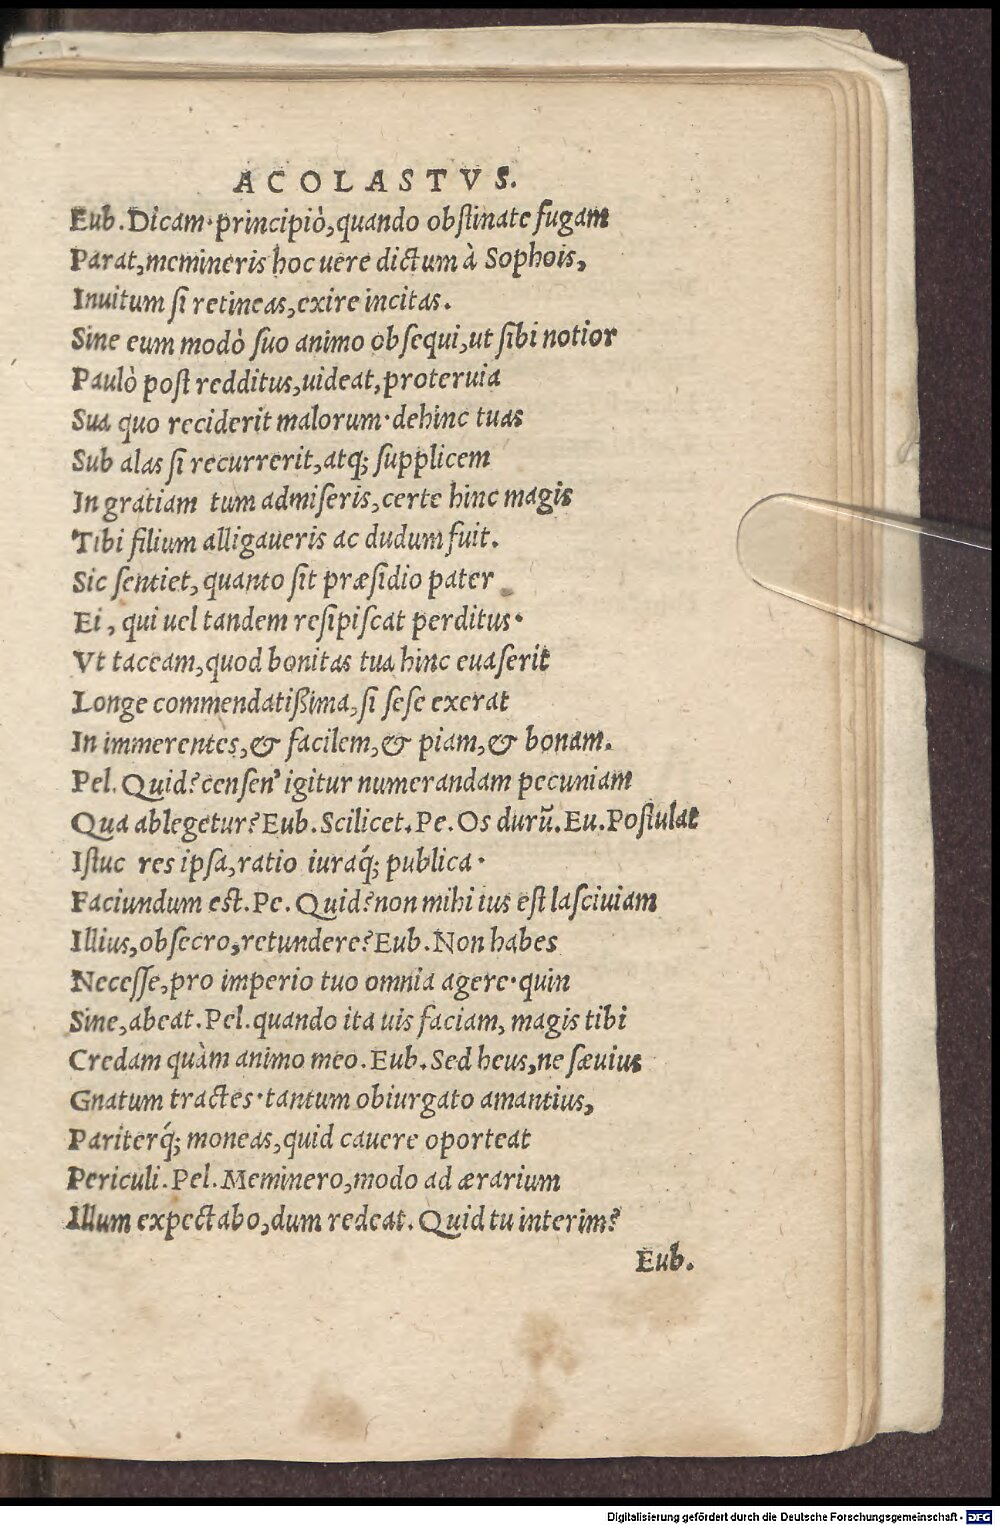 ACOLASTVS.
Eub. Dicam· principiò, quando obſtinate fugam
Parat, memineris hoc uere dictum à Sophois,
Inuitum ſi retineas, exire incitas.
Sine eum modò ſuo animo obſequi, ut ſibi notior
Paulò poſt redditus, uideat, proteruia
Sua quo reciderit malorum· dehinc tuas
Sub alas ſi recurrerit, atq; ſupplicem
In gratiam tum admiſeris, certe hinc magis
Tibi filium alligaueris ac dudum fuit.
Sic ſentiet, quanto ſit præſidio pater
Ei, qui uel tandem reſipiſcat perditus·
Vt taceam, quod bonitas tua hinc euaſerit
Longe commendatißima, ſi ſeſe exerat
In immerentes, & facilem, & piam, & bonam.
Pel. Quid? cenſen' igitur numerandam pecuniam
Qua ablegetur? Eub. Scilicet. Pe. Os durũ. Eu. Poſtulat
Iſtuc res ipſa, ratio iuraq́; publica·
Faciundum eſt. Pe. Quid? non mihi ius eſt laſciuiam
Illius, obſecro, retundere? Eub. Non habes
Neceſſe, pro imperio tuo omnia agere· quin
Sine, abeat. Pel. quando ita uis faciam, magis tibi
Credam quàm animo meo. Eub. Sed heus, ne ſæuius
Gnatum tractes· tantum obiurgato amantius,
Pariterq́; moneas, quid cauere oporteat
Periculi. Pel. Meminero, modo ad ærarium
Illum expectabo, dum redeat. Quid tu interim?
Eub.
Digitalisierung gefördert durch die Deutsche Forschungsgemeinschaft - DFG